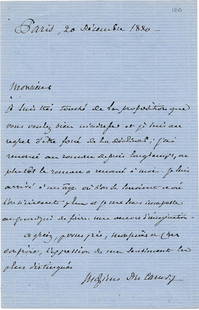 Paris, 20 Décembre 1880
Monsieur
je suis très touché de la proposition que
vous voulez bien m'adresser et je suis au
regret d'être forcé de la décliner ; j'ai
renoncé au roman depuis longtemps, ou
plutôt le roman a renoncé à moi. je suis
arrivé à un âge où
et je me sens incapable
aujourd'hui de faire une œuvre d'imagination.
agréez, je vous prie, monsieur et cher
confrère, l'expression de mes sentiments les
plus distingués
Maxime Du Camp